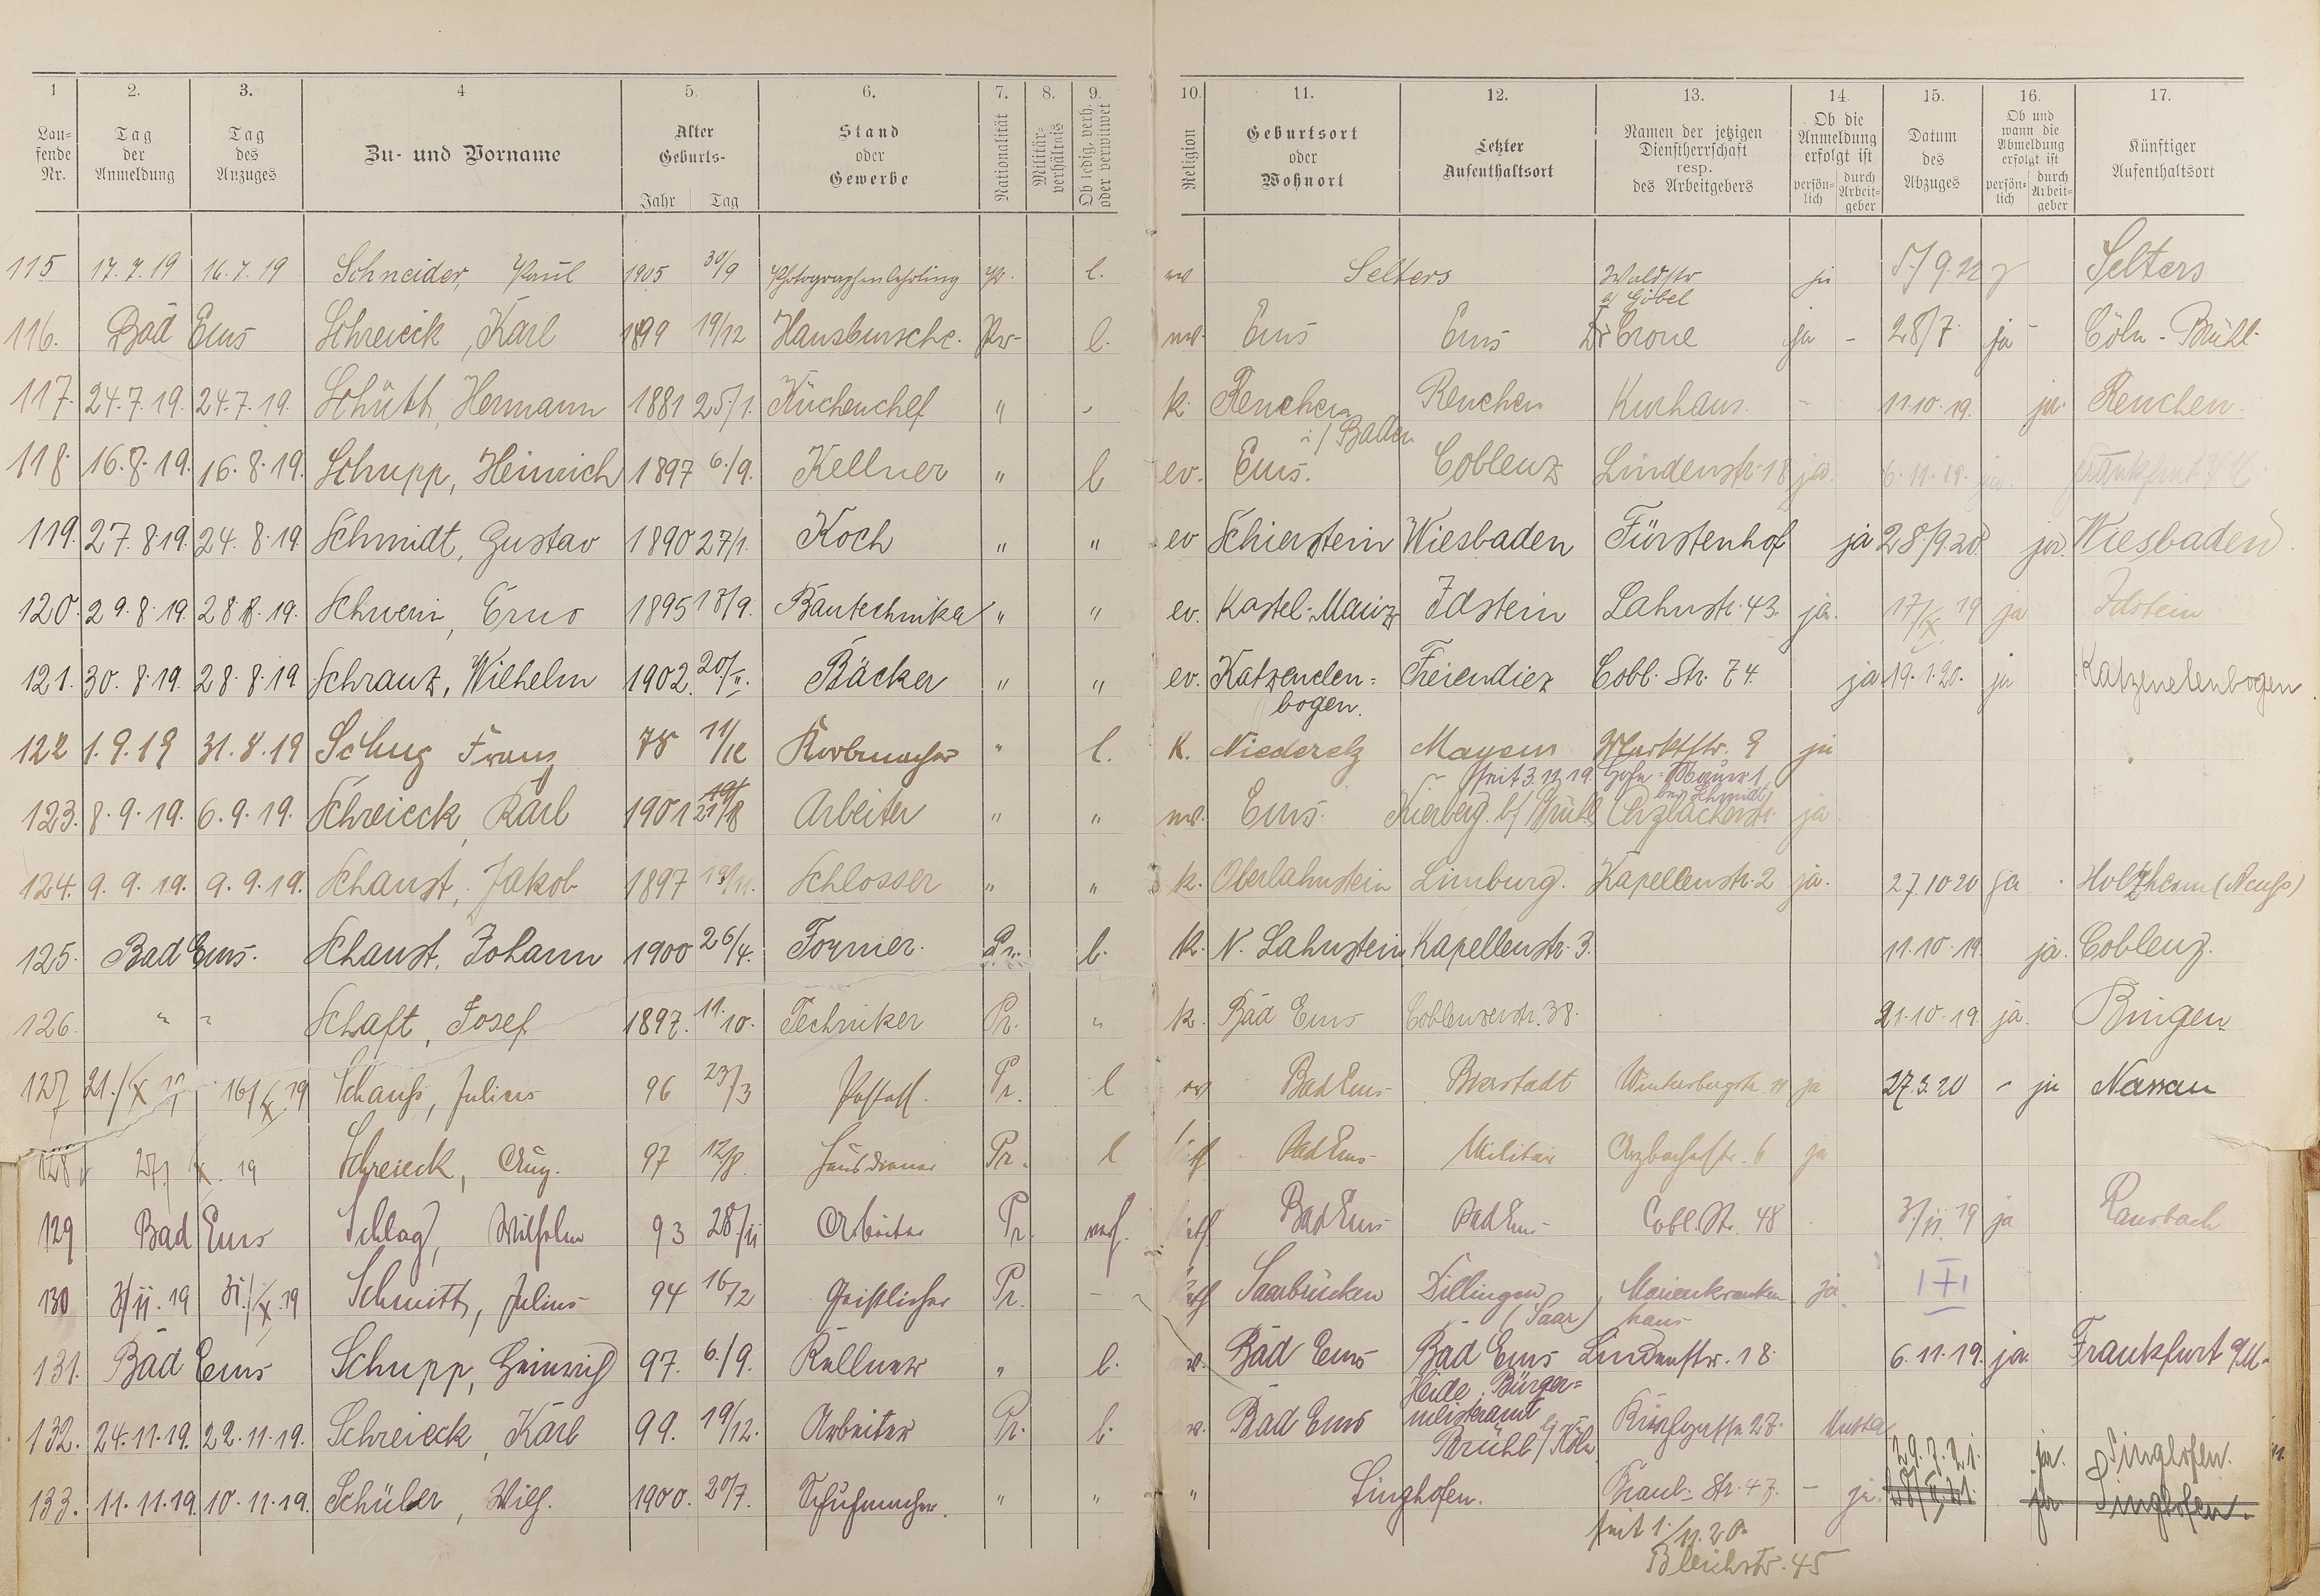 1 2. 3. 4 5. 6. 7. 8. 9. 10. 11. 12. 13. 14. 15. 16. 17.
Lau-
fende
Nr.
Tag
der
Anmeldung
Tag
des
Anzuges
Zu- und Vorname
Alter
Geburts-
Jahr Tag
Stand
oder
Gewerbe
Nationalität
Militär-
verhältnis
Ob ledig, verh.
oder verwitwet
Religion
Geburtsort
oder
Wohnort
Letzter
Aufenthaltsort
Namen der jetzigen
Dienstherrschaft
resp.
des Arbeitgebers
Ob die
Anmeldung
erfolgt ist
persön-
lich
durch
Arbeit-
geber
Datum
des
Abzuges
Ob und
wann die
Abmeldung
erfolgt ist
persön-
lich
durch
Arbeit-
geber
Künftiger
Aufenthaltsort
115 17.7.19 16.7.19 Schneider, Paul 1905 30/9 Photographenlehrling Pr. l. Selters Waldstr ja 5/9.22 Selters
b/ Göbel
116. Bad Ems Schreieck, Karl 1899 19/12 Hausbursche. Pr- l. ev. Ems Ems Dr Crone ja - 28/7 ja - Cöln-Brühl-
117. 24.7.19. 24.7.19. Schütt, Hermann 1881 25/1. Küchenchef " - k. Renchen Renchen Kurhaus - 11.10.19. ja. Renchen.
i/Baden
118. 16.8.19. 16.8.19. Schupp, Heinrich 1897 6./9. Kellner " l ev. Ems. Coblenz Lindenstr. 18 ja. 6.11.19. ja. Frankfurt a/M
119. 27.8.19. 24.8.19 Schmidt, Gustav 1890 27/1. Koch " " ev Schierstein Wiesbaden Fürstenhof ja 28./9.20. ja. Wiesbaden.
120. 29.8.19. 28.8.19. Schwein, Erno 1895 18/9. Bautechniker " " ev. Kastel-Mainz Idstein Lahnstr. 43. ja. 17/X 19 ja Idstein
121. 30.8.19. 28.8.19. Schranz, Wilhelm 1902. 20/II. Bäcker " " ev. Katzenelen= Freiendiez Cobl. Str. 74. ja 19.1.20. ja Katzenelenbogen.
bogen.
122 1.9.19 31.8.19 Schug Franz 78 11/12 Korbmacher " l. K. Niederelz Mayen Marktstr. 9 ja
seit 3.11.19.
bei Schmidt
123. 8.9.19. 6.9.19. Schreieck, Karl 1901 21/8 Arbeiter " " ev. Ems. Kierberg b/ Brühl Arzbacherstr. ja
124. 9.9.19. 9.9.19. Schaust, Jakob 1897 19/11. Schlosser " " k. Oberlahnstein Limburg. Kapellenstr. 2 ja. 27.10.20 ja . Holzheim (Neuß)
125. Bad Ems. Schaust, Johann 1900 26/4. Former. Pr. l. k. N. Lahnstein Kapellenstr. 3. 11.10.19. ja. Coblenz.
126. " " Schaft, Josef 1897. 11.10. Techniker Pr. " k. Bad Ems Coblenzerstr. 38. 21.10.19. ja. Bingen
127 21./X 19 16/X.19 Schauß, Julius 96 23/3 Pr. l ev Bad Ems Bierstadt Wintersbergstr. ja 27.3.20 - ja Nassau
128 27./X.19 Schreieck, Aug. 97 12/8. Hausdiener Pr. l Bad Ems Militär Arzbacherstr. 6 ja
129 Bad Ems Schlag, Wilhelm 93 28/II Arbeiter Pr. verh. kath. Bad Ems Bad Ems Cobl. Str. 48 3./11.19 ja Ransbach
130 3/11.19 31./X.19 Schmitt, Julius 94 16/2 Geistlicher Pr. - kath Saarbrücken Dillingen Marienkranken ja
(Saar) haus
131. Bad Ems Schupp, Heinrich 97. 6./9. Kellner " l. ev. Bad Ems Bad Ems Lindenstr. 18. 6.11.19. ja. Frankfurt a/M.
Heide. Bürger=
132. 24.11.19. 22.11.19. Schreieck, Karl 99. 19/12. Arbeiter Pr. l. ev. Bad Ems meisteramt Kirchgasse 27. Mutter
Brühl b/Köln
29.7.21. ja. Singhofen.
133. 11.11.19. 10.11.19. Schüler, Wilh. 1900. 20/7. Schuhmacher. " " " Singhofen. Braub. Str. 47. - ja. ja. Singhofen.
seit 1./11.20.
Bleichstr. 45